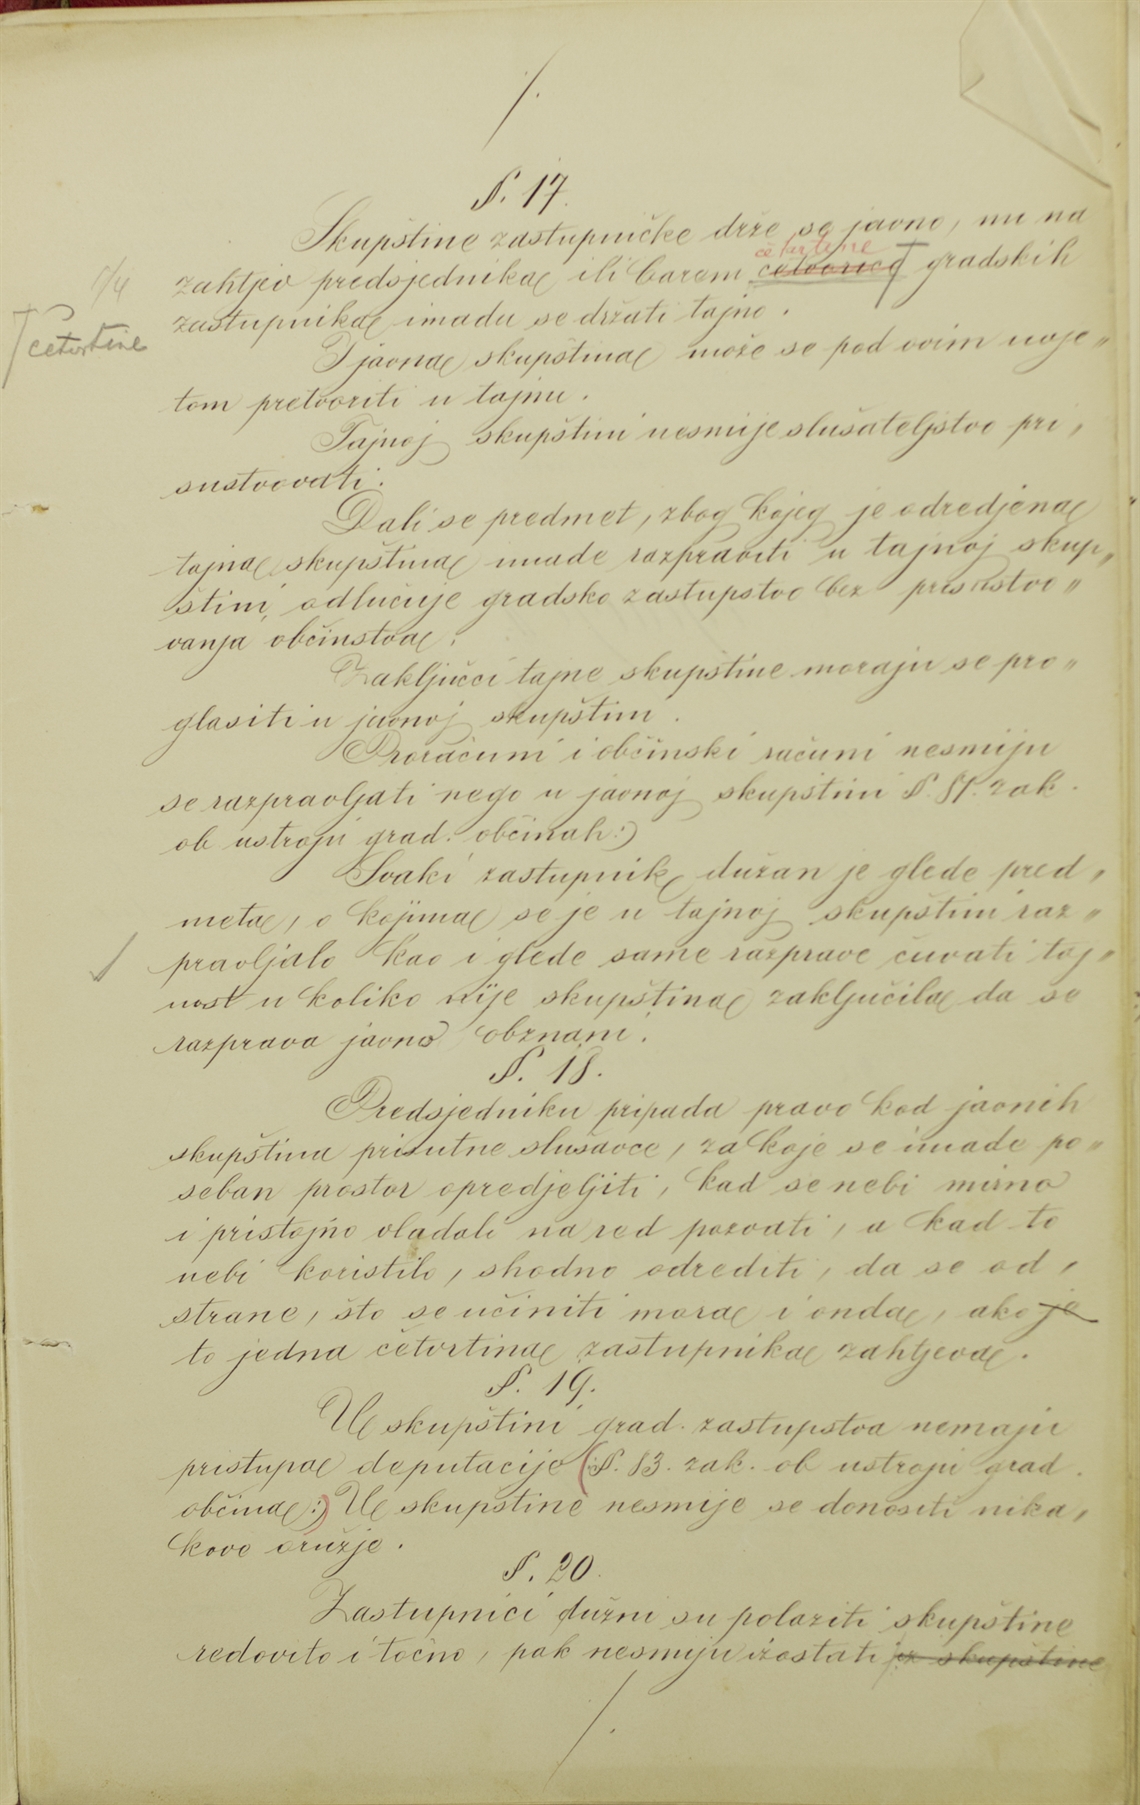 /.
§. 17.
Skupštine zastupničke drže se javno, nu na
četvrtine
zahtjev predsjednika ili barem četvorice gradskih
1/4
zastupnika imadu se držati tajno.
četvrtine
I javna skupština može se pod ovim uvje„
tom pretvoriti u tajnu.
Tajnoj skupštini nesmije slušateljstvo pri„
sustvovati.
Dali se predmet, zbog kojeg je odredjena
tajna skupština imade razpraviti u tajnoj skup„
štini, odlučuje gradsko zastupstvo bez prisustvo„
vanja občinstva.
Zaključci tajne skupštine moraju se pro„
glasiti u javnoj skupštini.
Proračuni i občinski računi nesmiju
se razpravljati nego u javnoj skupštini §. 81. zak.
ob ustroju grad. občinah:)
Svaki zastupnik dužan je glede pred„
meta, o kojima se je u tajnoj skupštini raz„
pravljalo kao i glede same razprave čuvati taj„
nost u koliko nije skupština zaključila da se
razprava javno obznani.
§. 18.
Predsjedniku pripada pravo kod javnih
skupština prisutne slušaoce, za koje se imade po„
seban prostor opredjeljiti, kad se nebi mirno
i pristojno vladali na red pozvati, a kad to
nebi koristilo, shodno odrediti, da se od„
strane, što se učiniti mora i onda, ako je
to jedna četvrtina zastupnika zahtjeva.
§. 19.
U skupštini grad. zastupstva nemaju
pristupa deputacije (:§. 83. zak. ob ustroju grad.
občina:) U skupštine nesmije se donositi nika„
kovo oružje.
§. 20.
Zastupnici dužni su polaziti skupštine
redovito i točno, pak nesmiju izostati iz skupštine
/.